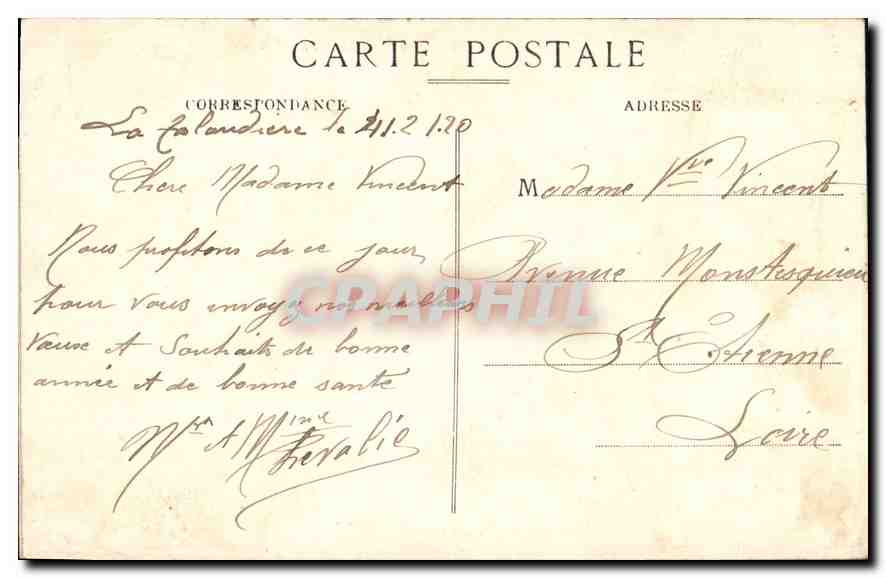 CARTE POSTALE
CORRESPONDANCE
ADRESSE
La le 1.20
Chere Madame Vincent
Nous profitons de ce jour
pour vous envoyy nos meilleurs
Vœux et Souhaits de bonne
année et de bonne santé
Mr et Mme
Madame Vve Vincent
Avenue Monstesquieu
St Etienne
Loire
CPAPHIL